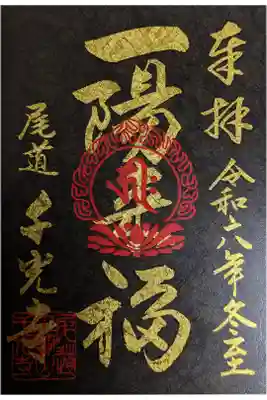 奉拝
令和六年冬至
一陽来福
尾道
千光寺